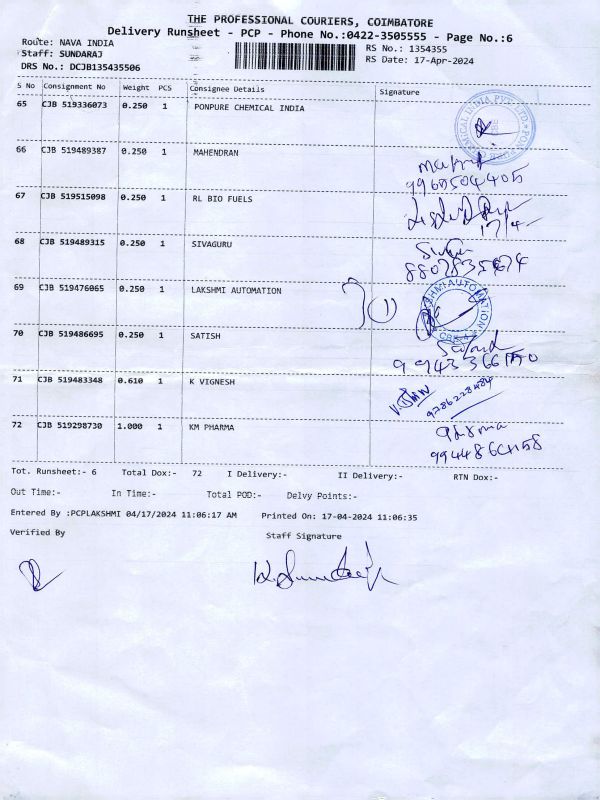 THE PROFESSIONAL COURIERS, COIMBATORE
Delivery Runsheet - PCP - Phone No.:0422-3505555 - Page No.:6
Route: NAVA INDIA
RS No.: 1354355
Staff: SUNDARAJ
RS Date: 17-Apr-2024
DRS No.: DCJB135435506
S No Consignment No Weight PCS Consignee Details Signature
65 CJB 519336073 0.250 1 PONPURE CHEMICAL INDIA
66 CJB 519489387 0.250 1 MAHENDRAN
67 CJB 519515098 0.250 1 RL BIO FUELS
17/4
68 CJB 519489315 0.250 1 SIVAGURU
69 CJB 519476065 0.250 1 LAKSHMI AUTOMATION
(1)
70 CJB 519486695 0.250 1 SATISH
71 CJB 519483348 0.610 1 K VIGNESH
9786228484
72 CJB 519298730 1.000 1 KM PHARMA
Tot. Runsheet:- 6 Total Dox:- 72 I Delivery:- II Delivery:- RTN Dox:-
Out Time:- In Time:- Total POD:- Delvy Points:-
Entered By :PCPLAKSHMI 04/17/2024 11:06:17 AM Printed On: 17-04-2024 11:06:35
Verified By Staff Signature